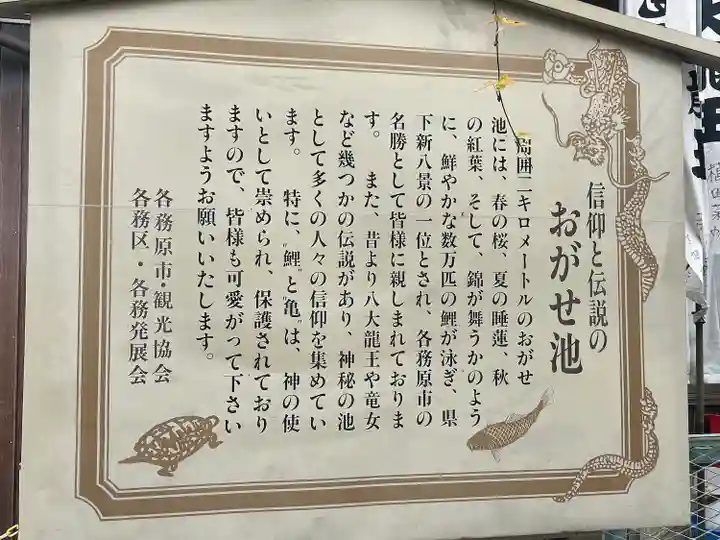 信仰と伝説の
おがせ池
周囲二キロメートルのおがせ
池には、春の桜、夏の睡蓮、秋
の紅葉、そして、錦が舞うかのよう
に、鮮やかな数万匹の鯉が泳ぎ、県
下新八景の一位とされ、各務原市の
名勝として皆様に親しまれておりま
す。　また、昔より八大龍王や竜女
など幾つかの伝説があり、神秘の池
として多くの人々の信仰を集めてい
ます。　特に、"鯉"と"亀"は、神の使
いとして崇められ、保護されており
ますので、皆様も可愛がって下さい
ますようお願いいたします。
各務原市・観光協会
各務区・各務発展会